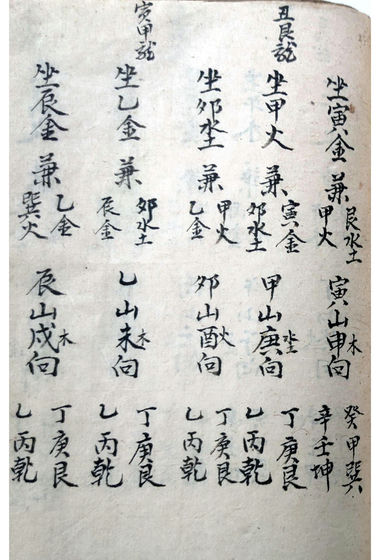 坐寅金兼艮水土甲火寅山申木向癸甲巽辛壬坤
丑艮龍
坐甲火兼寅金卯水土甲山庚水土向丁庚艮乙丙乾
坐卯水土兼甲火乙金卯山酉火向丁庚艮乙丙乾
寅甲龍
坐乙金兼卯水土辰金乙山未木向丁庚艮乙丙乾
坐辰金兼乙金巽火辰山戍木向丁庚艮乙丙乾